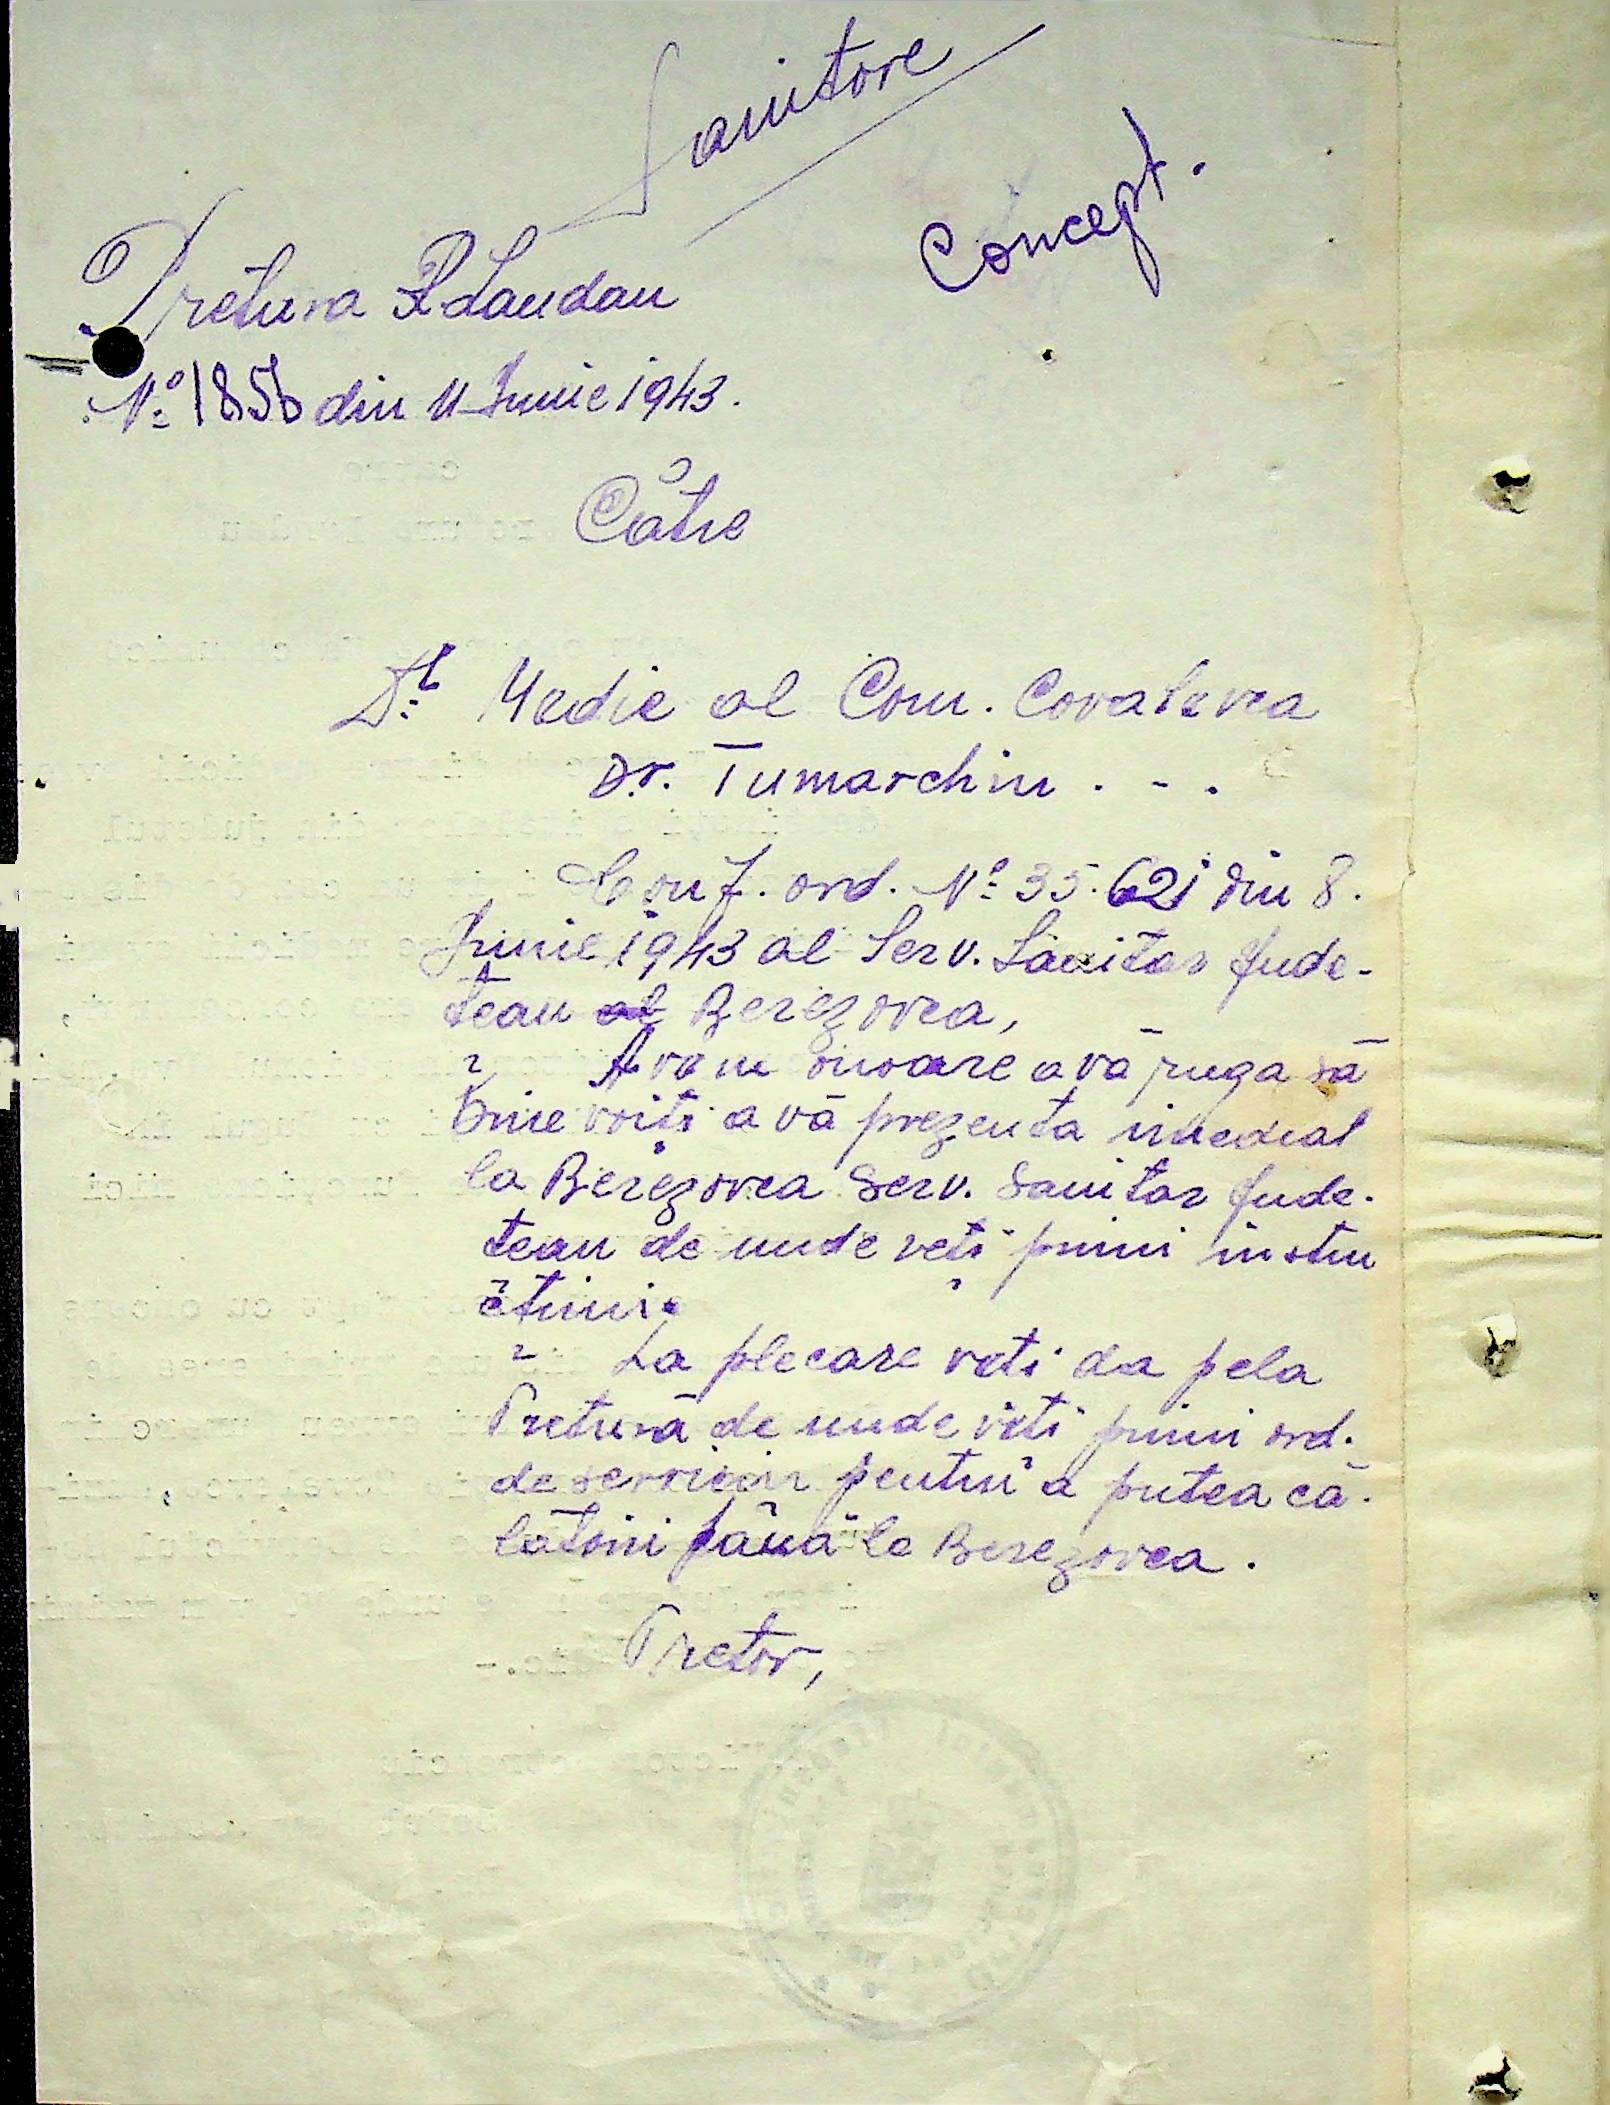 Sanitare
Concept.
Pretura R. Landau
No 1856 din 11 Iunie 1943.
Către
Dl Medic al Com. Covalevca
Dr. Tumarchin . - .
Conf. ord. No 35.621 din 8.
Iunie 1943 al Serv. Sanitar Jude-
țean al Berezovca,
Avem onoare a vă ruga să
bine voiți a vă prezenta imediat
la Berezovca Serv. Sanitar Jude-
țean de unde veți primi instru
cțiuni.
La plecare veți da pela
Pretură de unde veți primi ord.
de serviciu pentru a putea că-
lători până la Berezovca.
Pretor,